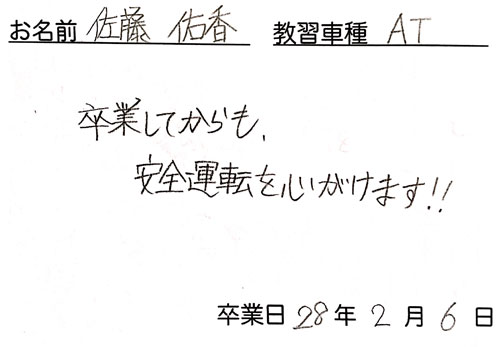 お名前 佐藤 佑香 教習車種 AT
卒業してからも、
安全運転を心がけます!!
卒業日 28年 2月 6日